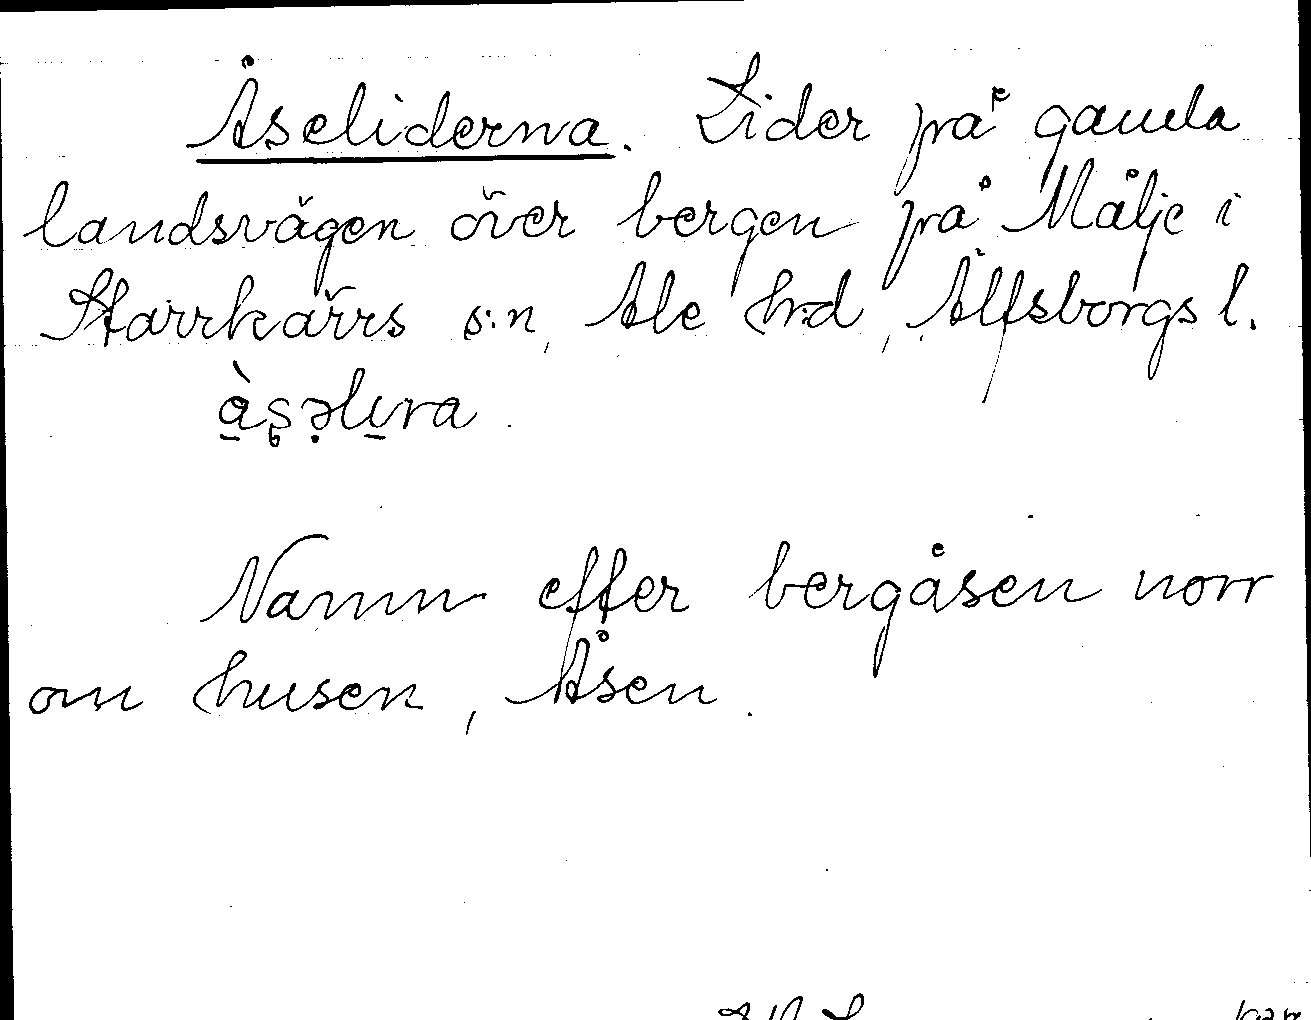 Åseliderna. Lider på gamla
landsvägen över bergen på Målje i
Starrkärrs s:n, Ale h:d, Älfsborgs l.
à̱ʂə̣lɩ̱ra
Namn efter bergåsen norr
om husen, Åsen.